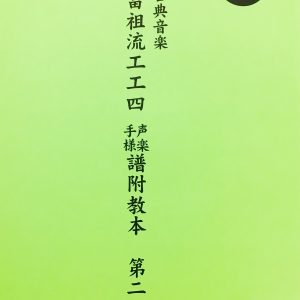 典音楽
留祖流工工四 声楽手様譜附教本 第二